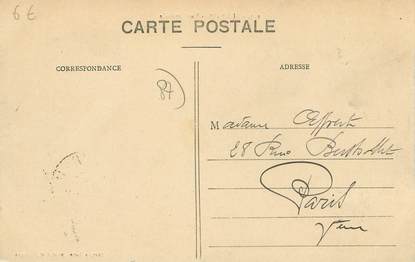 6€
CARTE POSTALE
CORRESPONDANCE
ADRESSE
87
Madame
28 Rue Berthollet
Paris